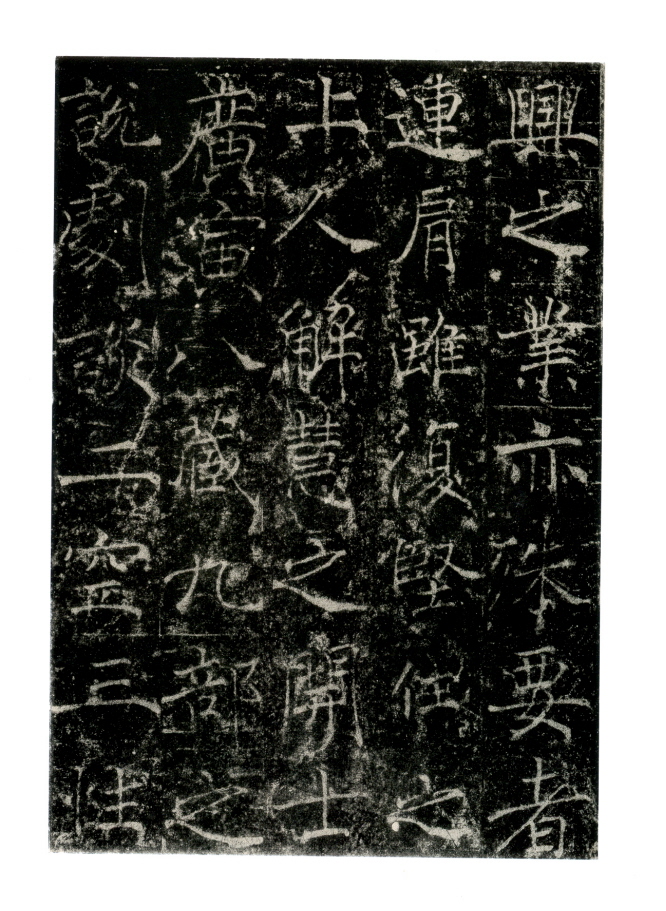 興之業亦殊要者
連肩雖復堅住之
上人解慧之開士
廣演八藏九部之
說劇談二空三性